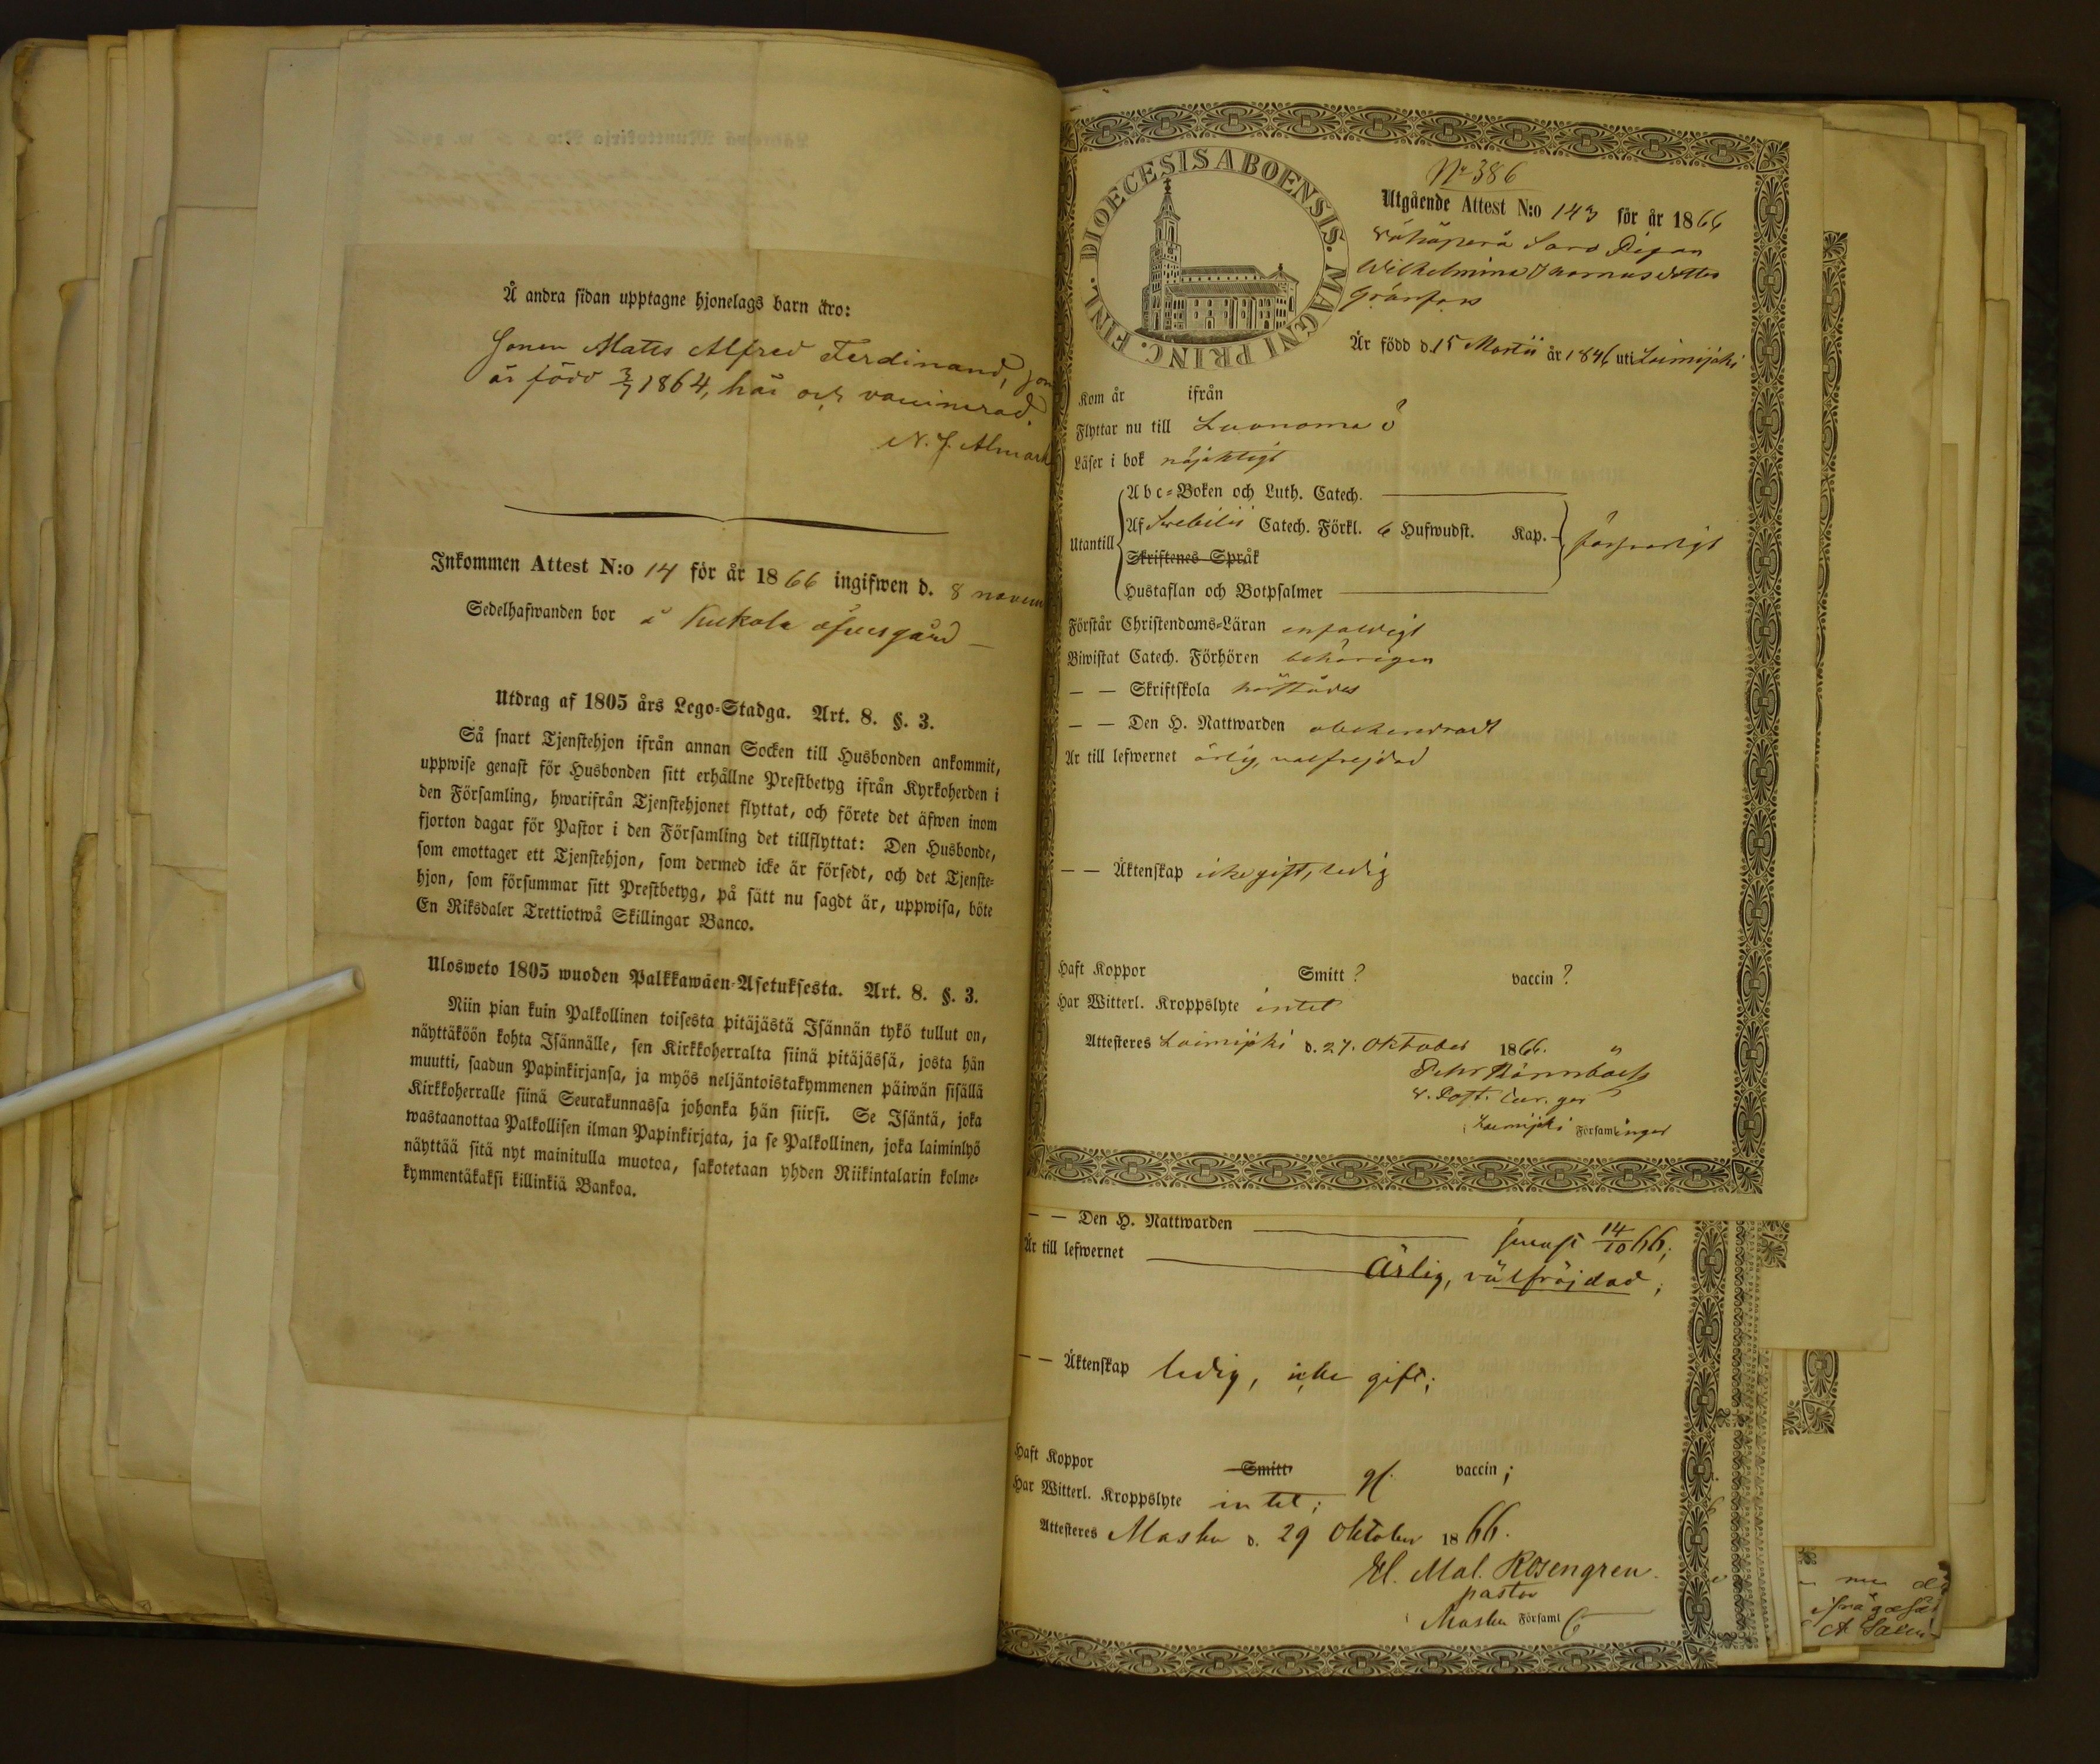 Å andra sidan upptagne hjonelags barn äro:
Sonen Matts Alfred Ferdinand, som
är född 3/7 1864, här och vaccinerad.
N. J. Almark
Inkommen Attest N:o 14 för år 1866 ingifwen d. 8 novem
Sedelhafwanden bor å Kukola öfversgård
Utdrag af 1805 års Lego-Stadga. Art. 8. §. 3.
Så snart Tjenstehjon ifrån annan Socken till Husbonden ankommit,
uppwise genast för Husbonden sitt erhållne Prestbetyg ifrån Kyrkoherden i
den Församling, hwarifrån Tjenstehjonet flyttat, och förete det äfwen inom
fjorton dagar för Pastor i den Församling det tillflyttat: Den Husbonde,
som emottager ett Tjenstehjon, som dermed icke är försedt, och det Tjenste-
hjon, som försummar sitt Prestbetyg, på sätt nu sagdt är, uppwisa, böte
En Riksdaler Trettiotwå Skillingar Banco.
Ulosweto 1805 wuoden Palkkawäen-Asetuksesta. Art. 8. §. 3.
Niin pian kuin Palkollinen toisesta pitäjästä Isännän tykö tullut on,
näyttäköön kohta Isännälle, sen Kirkkoherralta siinä pitäjässä, josta hän
muutti, saadun Papinkirjansa, ja myös neljäntoistakymmenen päiwän sisällä
Kirkkoherralle siinä Seurakunnassa johonka hän siirsi. Se Isäntä, joka
wastaanottaa Palkollisen ilman Papinkirjata, ja se Palkollinen, joka laiminlyö
näyttää sitä nyt mainitulla muotoa, sakotetaan yhden Riikintalarin kolme-
kymmentäkaksi killinkiä Bankoa.
DIOECESIS ABOENSIS. MAGNI PRINC. FINL.
No 386
Utgående Attest N:o 143 för år 1866
Vähäperä Pigan
Wilhelmina Thomasdotter
Gränfors
Är född d. 15 Martii år 1846 uti Loimijoki
Kom år ifrån
Flyttar nu till Luonomaa?
Läser i bok nöjaktigt
Utantill
Abc-Boken och Luth. Catech.
Af Swebilii Catech. Förkl. 6 Hufwudst. Kap. försvarligt
Skriftenes Språk
Hustaflan och Botpsalmer
Förstår Christendoms-Läran enfaldigt
Biwistat Catech. Förhören behörigen
— — Skriftskola
— — Den H. Nattwarden obehindradt
Är till lefwernet ärlig, välfrejdad
— — Äktenskap icke gift, ledig
Haft Koppor Smitt? vaccin?
Har Witterl. Kroppslyte intet
Attesteres Loimijoki d. 27. Oktober 1866.
v. Past.
Loimijoki Församlingar
— — Den H. Nattwarden senast 14/10 66;
Är till lefwernet Ärlig, välfräjdad;
— — Äktenskap ledig, icke gift;
Haft Koppor Smitt vaccin;
Har Witterl. Kroppslyte intet;
Attesteres Masku d. 29 Oktober 1866.
El. Mal. Rosengren.
pastor
i Masku Församl